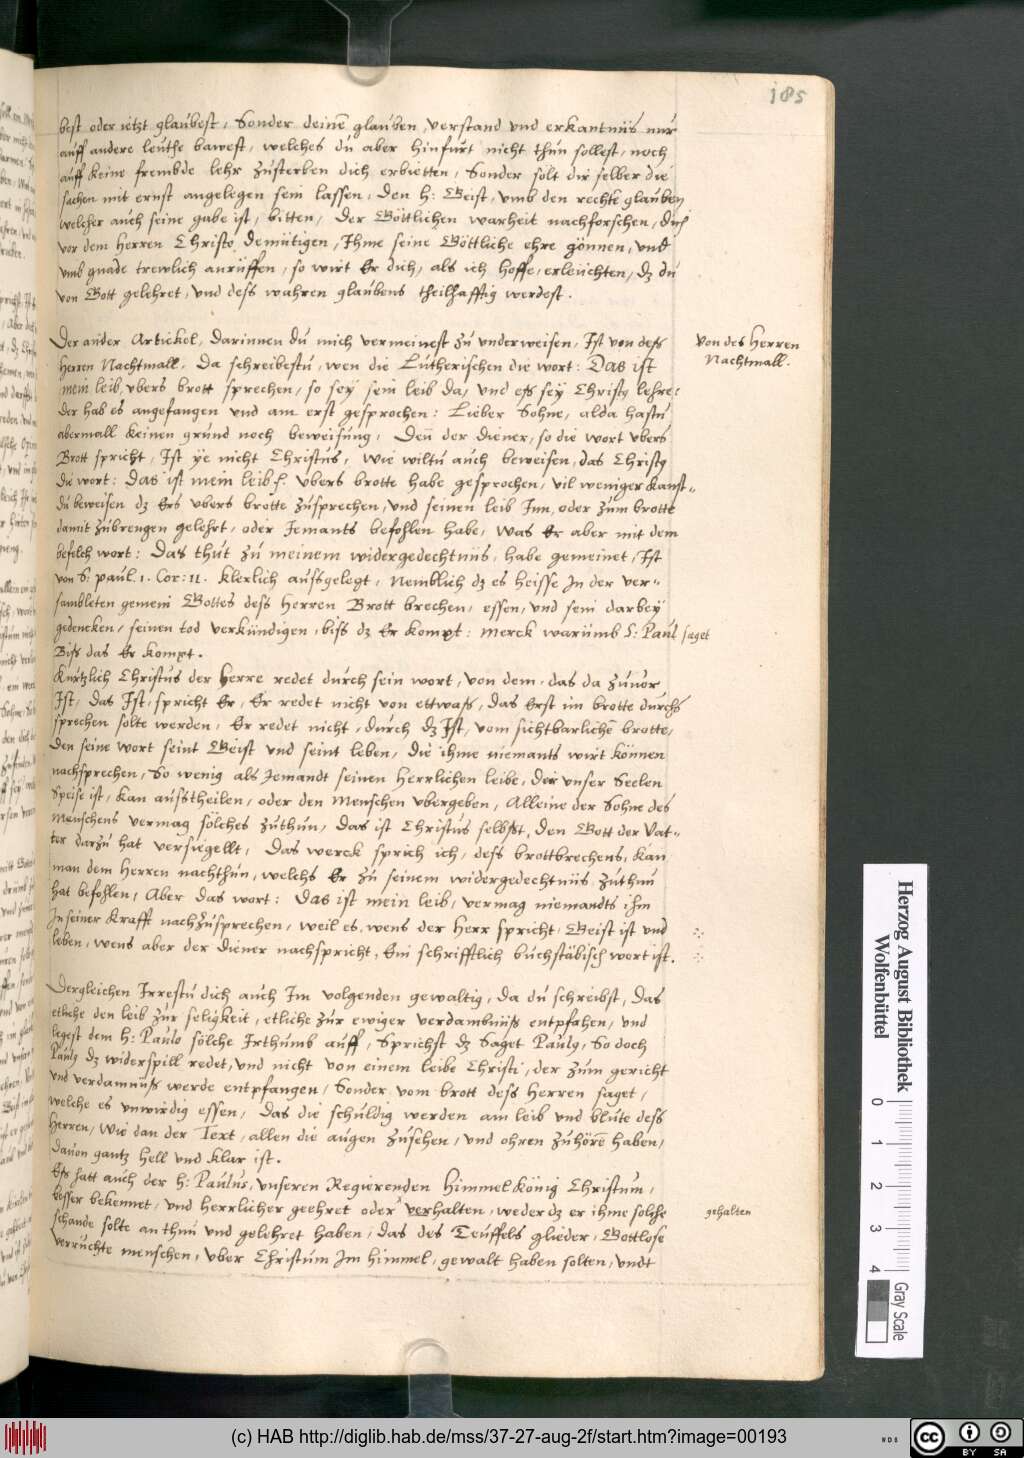 185
best oder ietzt glaubest, Sonder deine͞ glauben, verstand und erkantniis nur
auff andere leuthe bawest, welches du aber hinfurt nicht thun sollest, noch
auff keine frembde lehr zusterben dich erbietten, Sonder solt dir selber die
sachen mit ernst angelegen sein lassen, den h: Geist, umb den rechte͞ glauben
welcher auch seine gabe ist, bitten, der Göttlichen warheit nachforschen, dich
vor dem Herren Christo, demütigen, Ihme seine Göttliche ehre gönnen, und
umb gnade trewlich anrüffen, so wirt Er dich, als ich hoffe, erleuchten, dz du
von Gott gelehret, und dess wahren glaubens theilhafftig werdest.
Der ander Artickel, darinnen du mich vermeinest zu underweisen, Ist von dess
Herren Nachtmall, Da schreibestu, wen die Lutherischen die wort: Das ist
mein leib, ubers brott sprechen, so sey sein leib da, und ess sey Christy lehre:
der hab es angefangen und am erst gesprochen: Lieber Sohne, alda hastu
abermall keinen grund noch beweisung, Den̄ der diener, so die wort ubers
Brott spricht, Ist ye nicht Christus, Wie wiltu auch beweisen, das Christy
die wort: Das ist mein leib ubers brotte habe gesprochen, vil weniger kanst-
du beweisen dz Ers ubers brotte zusprechen, und seinen leib Inn, oder zum brotte
damit zubrengen gelehrt, oder Jemants befohlen habe, Was Er aber mit dem
befelch wort: Das thut zu meinem widergedechtniis, habe gemeinet, Ist
von S. paul. 1. Cor: 11. klerlich aussgelegt, Nemblich dz es heisse In der ver-
sambleten gemein Gottes dess Herren Brott brechen, essen, und sein darbey
gedencken, seinen tod verkündigen, biss dz Er kompt: Merck warumb S: Paul saget
Biss das Er kompt.
Kurtzlich Christus der Herre redet durch sein wort, von dem, das da zuuor
Ist, das Ist, spricht Er, Er redet nicht von ettwass, das Erst im brotte durchs
sprechen solte werden, Er redet nicht, durch dz Ist, vom sichtbarliche͞ brotte,
Den seine wort seint Geist und seint leben, die ihme niemants wirt können
nachsprechen, So wenig als Jemandt seinen Herrlichen leibe, der unser Seelen
Speise ist, kan ausstheilen, oder den Menschen ubergeben, Alleine der Sohne des
Menschens vermag sölches zuthun, das ist Christus selbsst, den Gott der Vat-
ter darzu hat versiegellt, Das werck sprich ich, dess brottbrechens, kan
man dem Herren nachthun, welchs Er zu seinem widergedechtniis zuthun
hat befohlen, Aber das wort: Das ist mein leib, vermag niemandts ihm
In seiner Krafft nachzusprechen, weil es, wens der Herr spricht, Geist ist und
leben, wens aber der diener nachspricht, Ein schrifftlich buchstäbisch wort ist.
Dergleichen Irrestu dich auch Im volgenden gewaltig, da du schreibst, Das
etliche den leib zur seligkeit, etliche zur ewiger verdambniiss entpfahen, und
legest dem h: Paulo sölche Irthumb auff, Sprichst dz Saget Pauly, So doch
Pauly dz widerspill redet, und nicht von einem leibe Christi, der zum gericht
und verdamnüss werde entpfangen, Sonder vom brott dess Herren saget,
welche es unwirdig essen, das die schuldig werden am leib und blute dess
Herren, Wie dan der Text, allen die augen zusehen, und ohren zuhöre͞ haben,
dauon gantz hell und klar ist.
Ess hatt auch der h: Paulus, unseren Regierenden Himmel König Christum,
besser bekennet, und herrlicher geehret oder verhalten, weder dz er ihme solche
schande solte an thun und gelehret haben, das des Teuffels glieder, Gottlose
verruchte menschen, uber Christum Im himmel, gewalt haben solten, undt
Von des Herren
Nachtmall.
gehalten
Herzog August Bibliothek
Wolfenbüttel
0 1 2 3 4
Gray Scale
(c) HAB http://diglib.hab.de/mss/37-27-aug-2f/start.htm?image=00193
WDB
cc BY SA